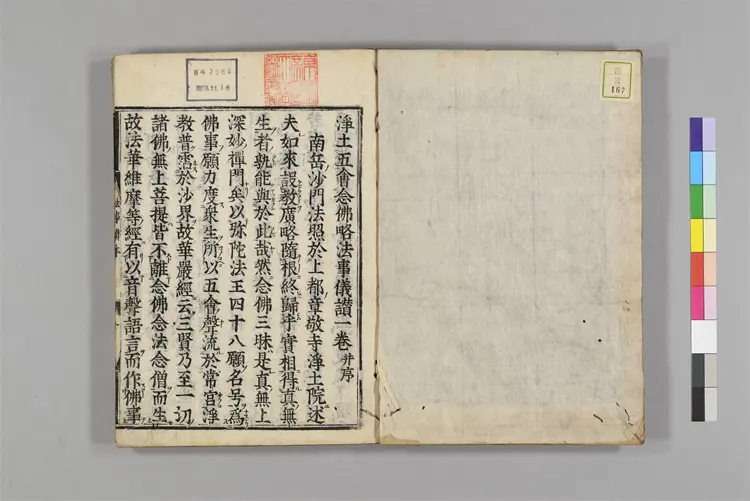 浄土五會念佛略法事儀讃一卷 并序
南岳沙門法照於上都章敬寺浄土院述
夫如來設教廣略隨根終歸乎實相得真無
生者孰能與於此哉然念佛三昧是真無上
深妙禪門矣以弥陀法王四十八願名号爲
佛事願力度衆生所以五會聲流於常宮浄
教普霑於沙界故華嚴經云三賢乃至一切
諸佛無上菩提皆不離念佛念法念僧而生
故法華維摩等經有以音聲語言而作佛事
167